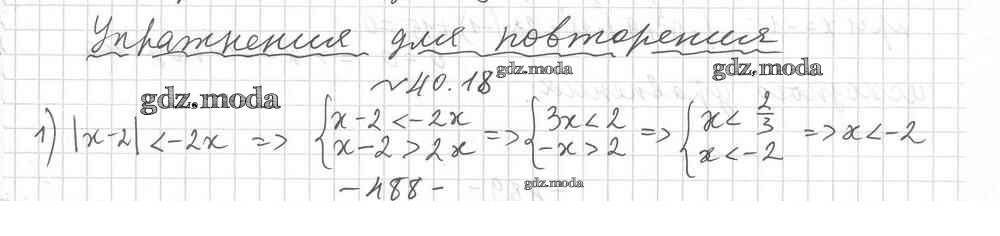 Упражнения для повторения
~40.18
gdz.moda
gdz.moda
gdz.moda
1) |x-2| < -2x => { x-2 < -2x => { 3x < 2 => { x < 2/3 => x < -2
x-2 > 2x -x > 2 x < -2
-488-
gdz.moda